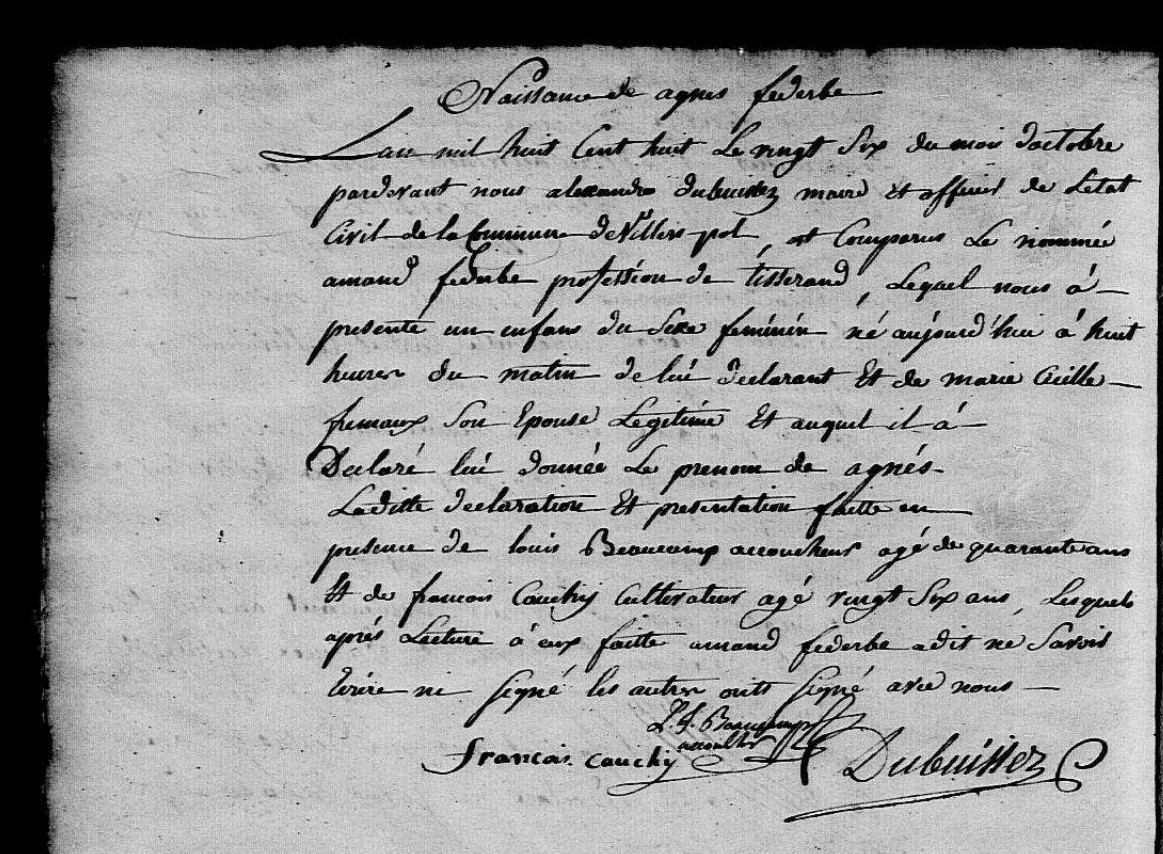 Naissance de agnes federbe
Lan mil huit Cent huit Le vingt Six du mois doctobre
pardevant nous alexandre dubuissez maire et officier de Letat
Civil de la Commune de Villers pol, est Comparus Le nommée
amand federbe profession de tisserand, Lequel nous á
presenté un enfans du Sexe feminin né aujourd'hui á huit
heures du matin de lui declarant Et de marie
fumaux Son Epouse Legitime Et auquel il á
Declaré lui donnée Le prenom de agnés
Laditte declaration Et presentation faitte en
presence de louis Beaucamp accoucheur agé de quarante ans
Et de francois Cauchy Cultivateur agé vingt Six ans, Lesquels
aprés Lecture á eux faitte amand federbe a dit ne Savoir
Ecrire ni signé les autres onts signé avec nous
L. J. Beaucamp
francois cauchy Dubuissez